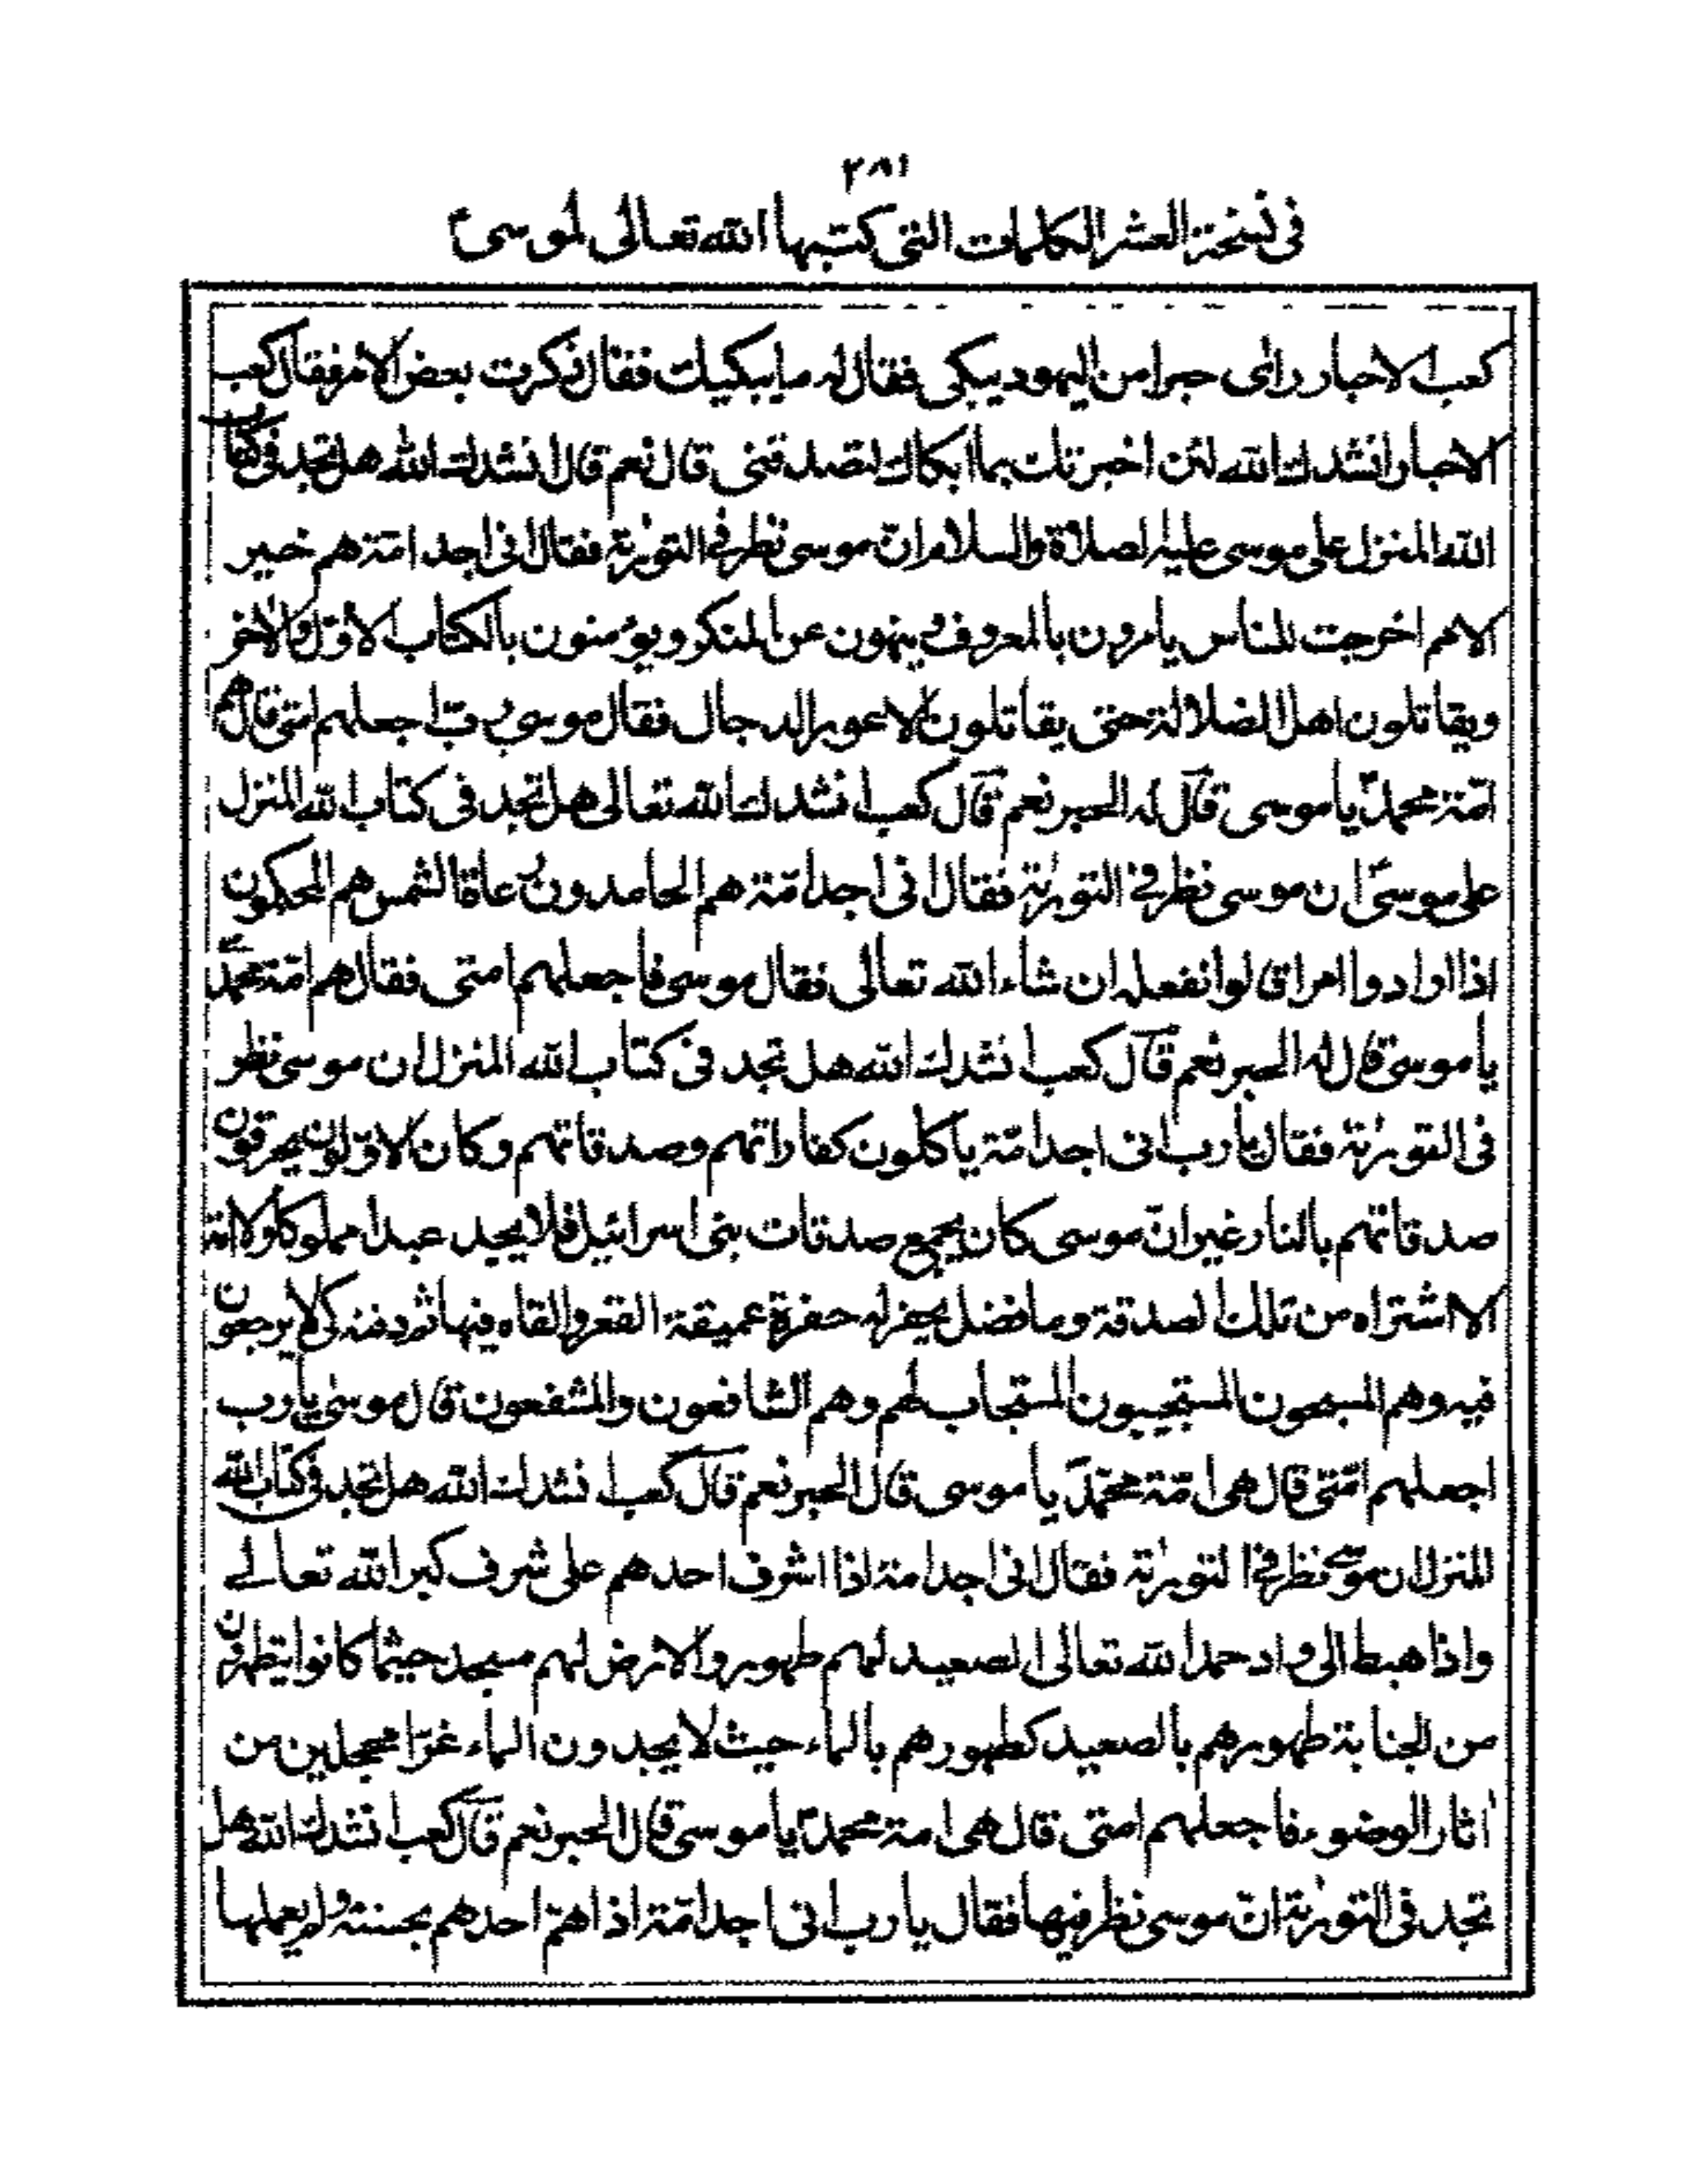 ٢٨١
فى نسخة العشر الكلمات التى كتبها الله تعالى لموسىؑ
كعب الاحبار راى حبرا من اليهود يبكى فقال له ما يبكيك فقال ذكرت بعض الامر فقال كعب
الاحبار انشدك الله لئن اخبرتك بما ابكاك لتصدقنى قال نعم قال انشدك الله هل تجد فى كتاب
الله المنزل على موسى عليه الصلاة والسلام ان موسى نظر فى التورٰية فقال انى اجد امّة هم خير
الامم اخرجت للناس يامرون بالمعروف وينهون عن المنكر ويؤمنون بالكتاب الاوّل والاٰخر
ويقاتلون اهل الضلالة حتى يقاتلون الاعور الدجال فقال موسى ربّ اجعلهم امتى قال هم
امّة محمدؐ يا موسى قال له الحبر نعم قال كعب انشدك الله تعالى هل تجد فى كتاب الله المنزل
على موسىؑ ان موسى نظر فى التورٰية فقال انى اجد امّة هم الحامدون رعاة الشمس هم المحكمون
اذا ارادوا امرا قالوا نفعله ان شاء الله تعالى فقال موسى فاجعلهم امتى فقال هم امّة محمدؐ
يا موسى قال له الحبر نعم قال كعب انشدك الله هل تجد فى كتاب الله المنزل ان موسى نظر
فى التورٰية فقال يا رب انى اجد امّة ياكلون كفاراتهم وصدقاتهم وكان الاوّلون يحرقون
صدقاتهم بالنار غير انّ موسى كان يجمع صدقات بنى اسرائيل فلا يجد عبدا مملوكا ولا امة
الا اشتراه من تلك الصدقة وما فضل يحفر له حفرة عميقة القعر والقاه فيها ثم دفنه كى لا يرجعون
فيه وهم المسبحون المستجيبون المستجاب لهم وهم الشافعون والمشفعون قال موسى يا رب
اجعلهم امّتى قال هى امّة محمّدؐ يا موسى قال الحبر نعم قال كعب انشدك الله هل تجد فى كتاب الله
المنزل ان موسىؑ نظر فى التورٰية فقال انى اجد امة اذا اشرف احدهم على شرف كبر الله تعالى
واذا هبط الى واد حمد الله تعالى الصعيد لهم طهور والارض لهم مسجد حيثما كانوا يتطهرون
من الجنابة طهورهم بالصعيد كطهورهم بالماء حيث لا يجدون الماء غرّا محجلين من
اٰثار الوضوء فاجعلهم امتى قال هى امة محمدؐ يا موسى قال الحبر نعم قال كعب انشدك الله هل
تجد فى التورٰية انّ موسى نظر فيها فقال يا رب انى اجد امّة اذا همّ احدهم بحسنة ولم يعملها